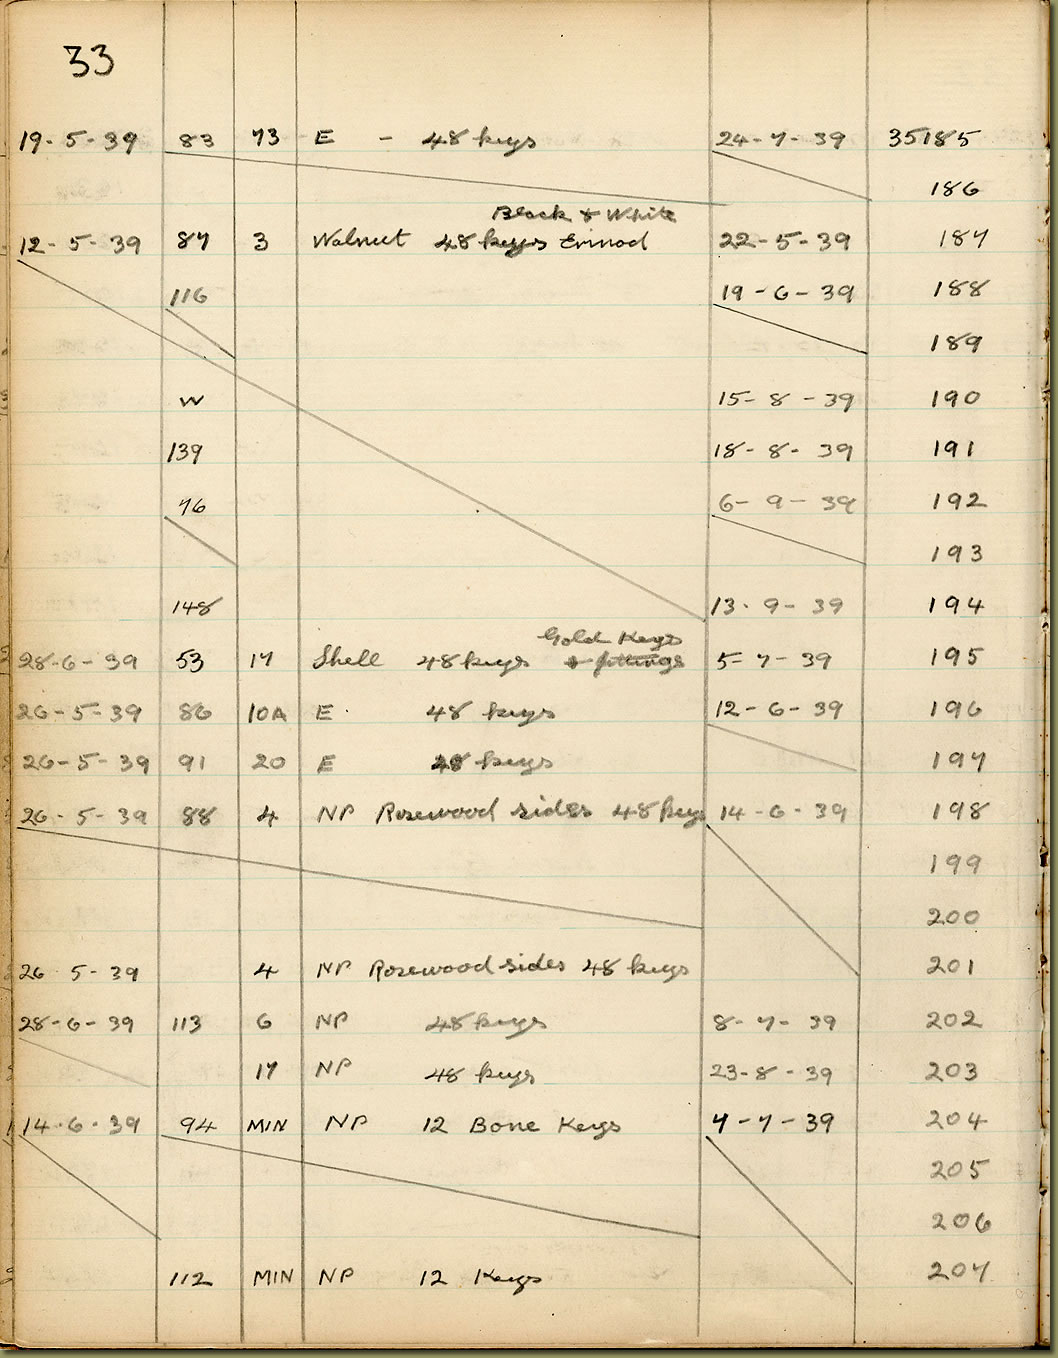 33
19-5-39 83 73 E - 48 keys 24-7-39 35185
186
Black & White
12-5-39 87 3 Walnut 48 keys 22-5-39 187
116 19-6-39 188
189
W 15-8-39 190
139 18-8-39 191
76 6-9-39 192
193
148 13-9-39 194
Gold Keys
28-6-39 53 17 Shell 48 keys & fittings 5-7-39 195
26-5-39 86 10A E 48 keys 12-6-39 196
26-5-39 91 20 E 48 keys 197
26-5-39 88 4 NP Rosewood sides 48 keys 14-6-39 198
199
200
26 5-39 4 NP Rosewood sides 48 keys 201
28-6-39 113 6 NP 48 keys 8-7-39 202
17 NP 48 keys 23-8-39 203
14-6-39 94 MIN NP 12 Bone Keys 7-7-39 204
205
206
112 MIN NP 12 Keys 207